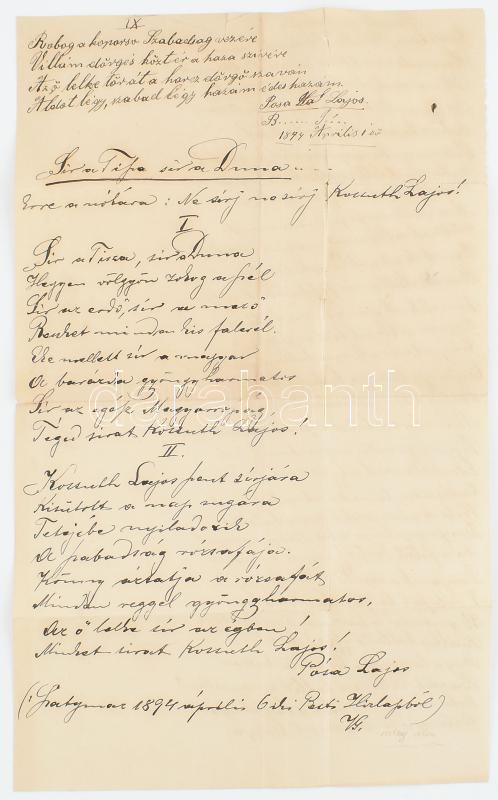 IX
Robog a koporsó Szabadság vezére
Villám dörgés közt ér a haza szívére
Az ő lelke tör át a harcz dörgő szaván
Áldott légy, szabad légy hazám édes hazám.
Posa Lajos.
B.....
1894 Április 1 én
Sir a Tisza sir a Duna ....
Erre a nótára: Ne sirj ne sirj Kossuth Lajos!
I
Sir a Tisza, sir a Duna
Hegyen völgyön zokog a szél
Sir az erdő, sir a mező
Reszket minden kis falevél.
Eke mellett sir a magyar
A barázda gyöngyharmatos
Sir az egész Magyarország,
Téged sirat Kossuth Lajos!
II.
Kossuth Lajos szent sirjára
Kisütött a nap sugára
Tetejébe nyiladozik
A szabadság rózsafája.
Könny áztatja a rózsafát
Minden reggel gyöngyharmatos,
Az ő lelke sir az égben!
Minket sirat Kossuth Lajos!
Pósa Lajos
(: Szatymaz 1894 április 6 iki Pesti Hirlapból)
darabanth